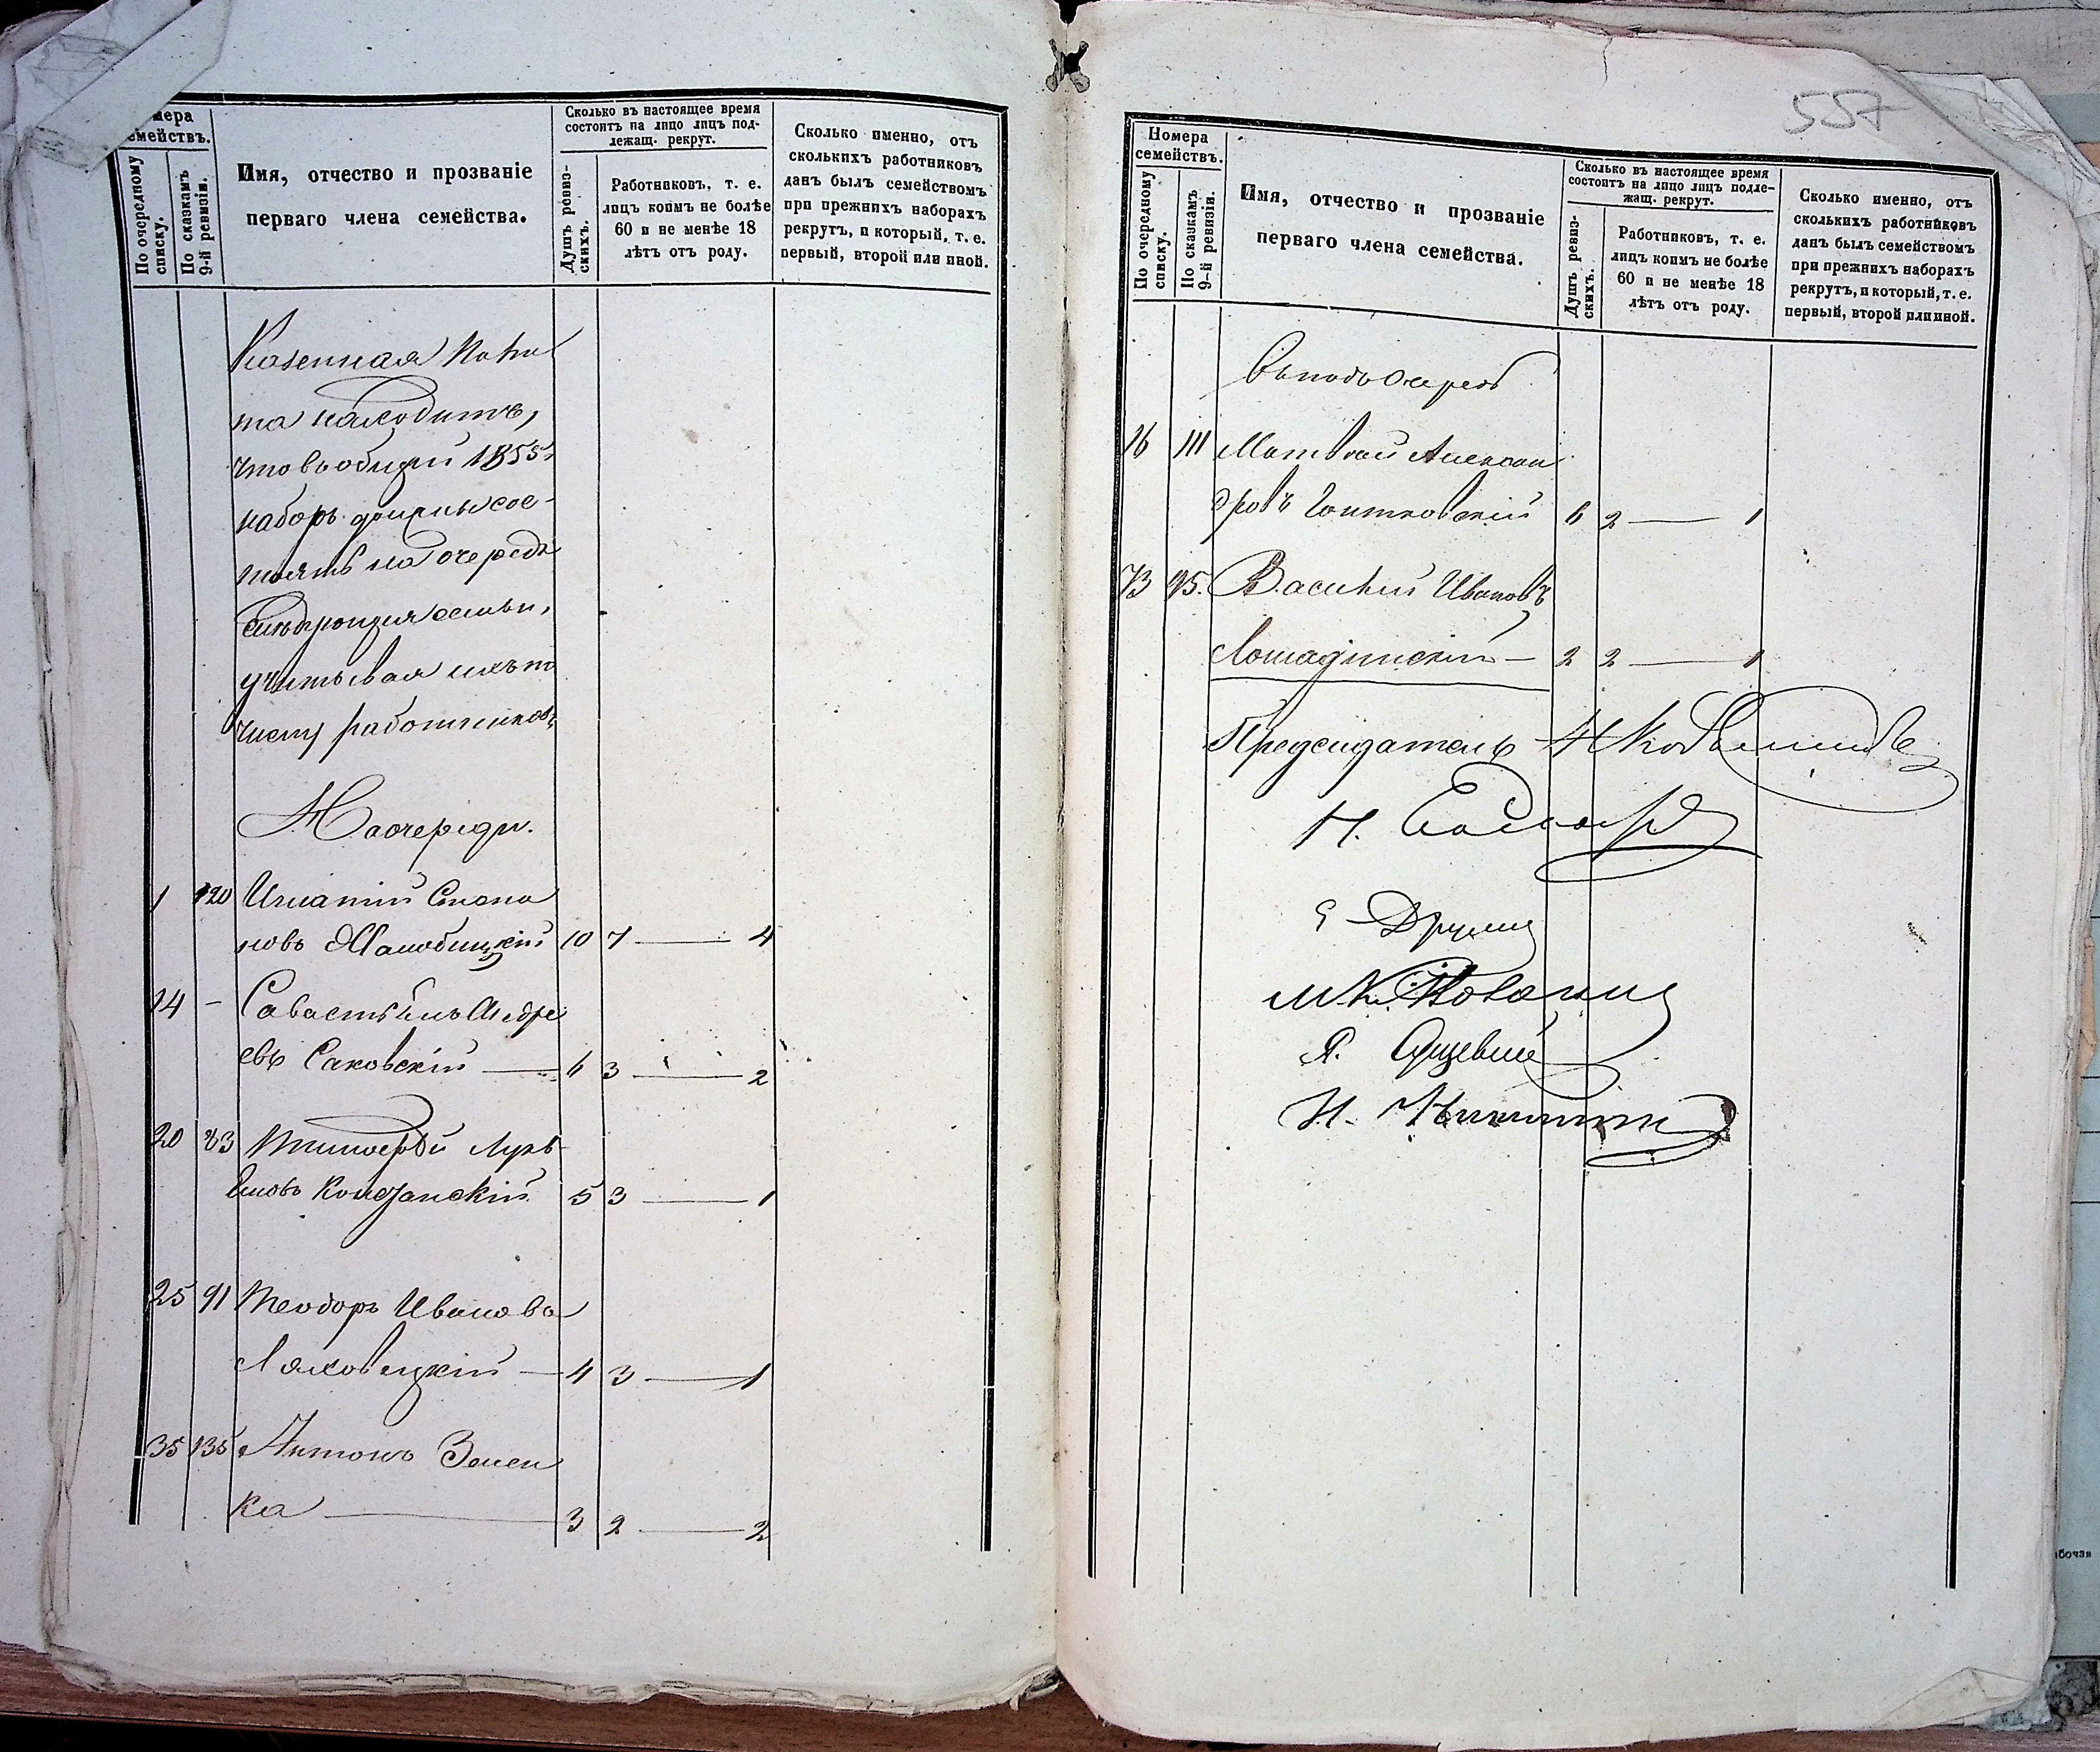 мера
емействъ.
По очередному списку.
По сказкамъ 9-й ревизіи.
Имя, отчество и прозваніе
перваго члена семейства.
Сколько въ настоящее время
состоитъ на лицо лицъ под-
лежащ. рекрут.
Душъ ревиз-
скихъ.
Работниковъ, т. е.
лицъ коимъ не болѣе
60 и не менѣе 18
лѣтъ отъ роду.
Сколько именно, отъ
сколькихъ работниковъ
данъ былъ семействомъ
при прежнихъ наборахъ
рекрутъ, и который, т. е.
первый, второй или иной.
Казенная Пала
та находитъ,
что въ общій 1855
наборъ должны сос-
тоять на очереди
слѣдующія семьи,
учитывая ихъ по
числу работниковъ
На очереди.
1 120 Игнатій Степа
новъ 10 7 — 4
14 — Савастьянъ Андре
евъ Саковскій — 6 3 — 2
20 83 Тимофей Лукь-
яновъ 5 3 — 1
25 91 Теодоръ Иванова
Ляховецкій — 4 3 — 1
35 135 Антонъ Зелен
ка — 3 2 — 2
557
Номера
семействъ.
По очередному списку.
По сказкамъ 9-й ревизіи.
Имя, отчество и прозваніе
перваго члена семейства.
Сколько въ настоящее время
состоитъ на лицо лицъ подле-
жащ. рекрут.
Душъ ревиз-
скихъ.
Работниковъ, т. е.
лицъ коимъ не болѣе
60 и не менѣе 18
лѣтъ отъ роду.
Сколько именно, отъ
сколькихъ работниковъ
данъ былъ семействомъ
при прежнихъ наборахъ
рекрутъ, и который, т. е.
первый, второй или иной.
въ подъочередь
16 111 Матвей Алексан
дровъ 6 2 — 1
73 95. Василій Ивановъ
Лошадинскій — 2 2 — 1
Предсидатель
Н.
М. К.
Я.
И.
бочая